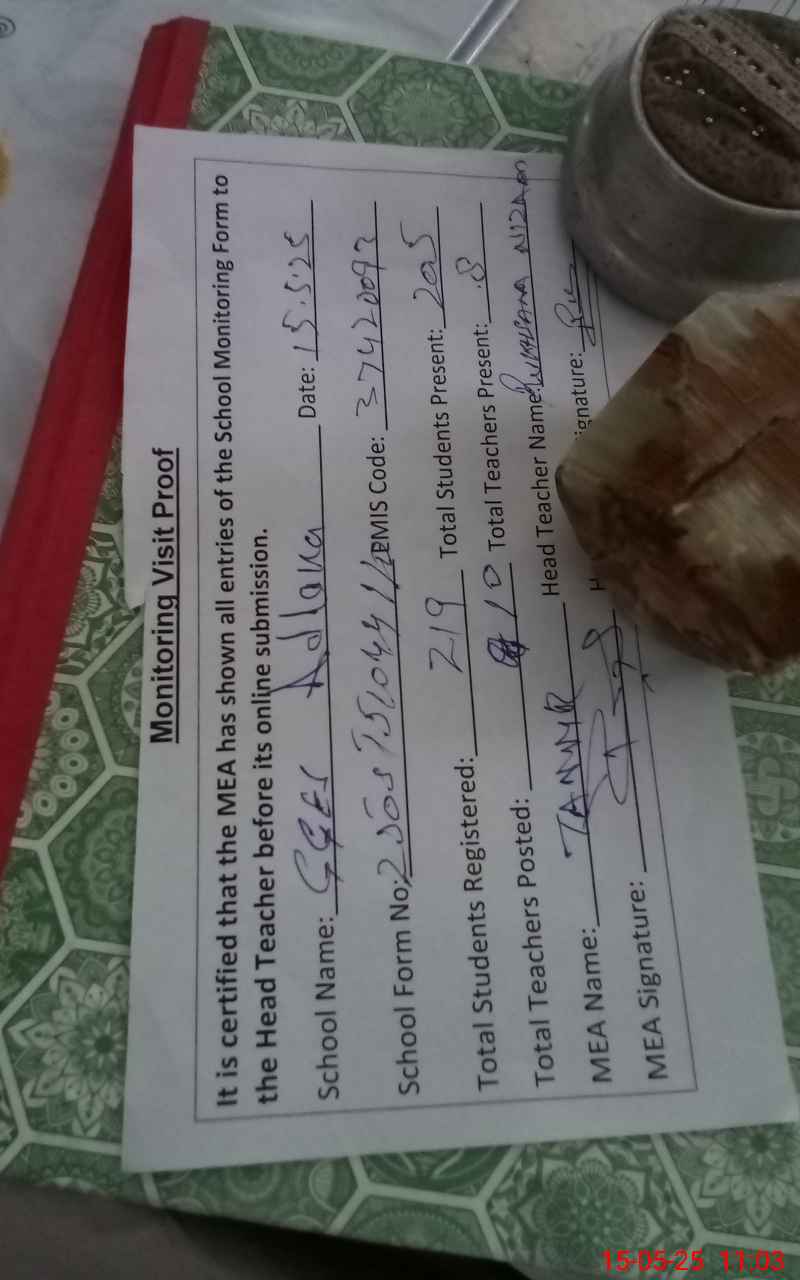 Monitoring Visit Proof
It is certified that the MEA has shown all entries of the School Monitoring Form to
the Head Teacher before its online submission.
School Name: GGES Adlana Date: 15.5.25
School Form No: EMIS Code: 37420093
Total Students Registered: 219 Total Students Present: 205
Total Teachers Posted: 10 Total Teachers Present: 8
MEA Name: Head Teacher Name: RUKHSANA NIZAM
MEA Signature: ignature:
15-05-25 11:03